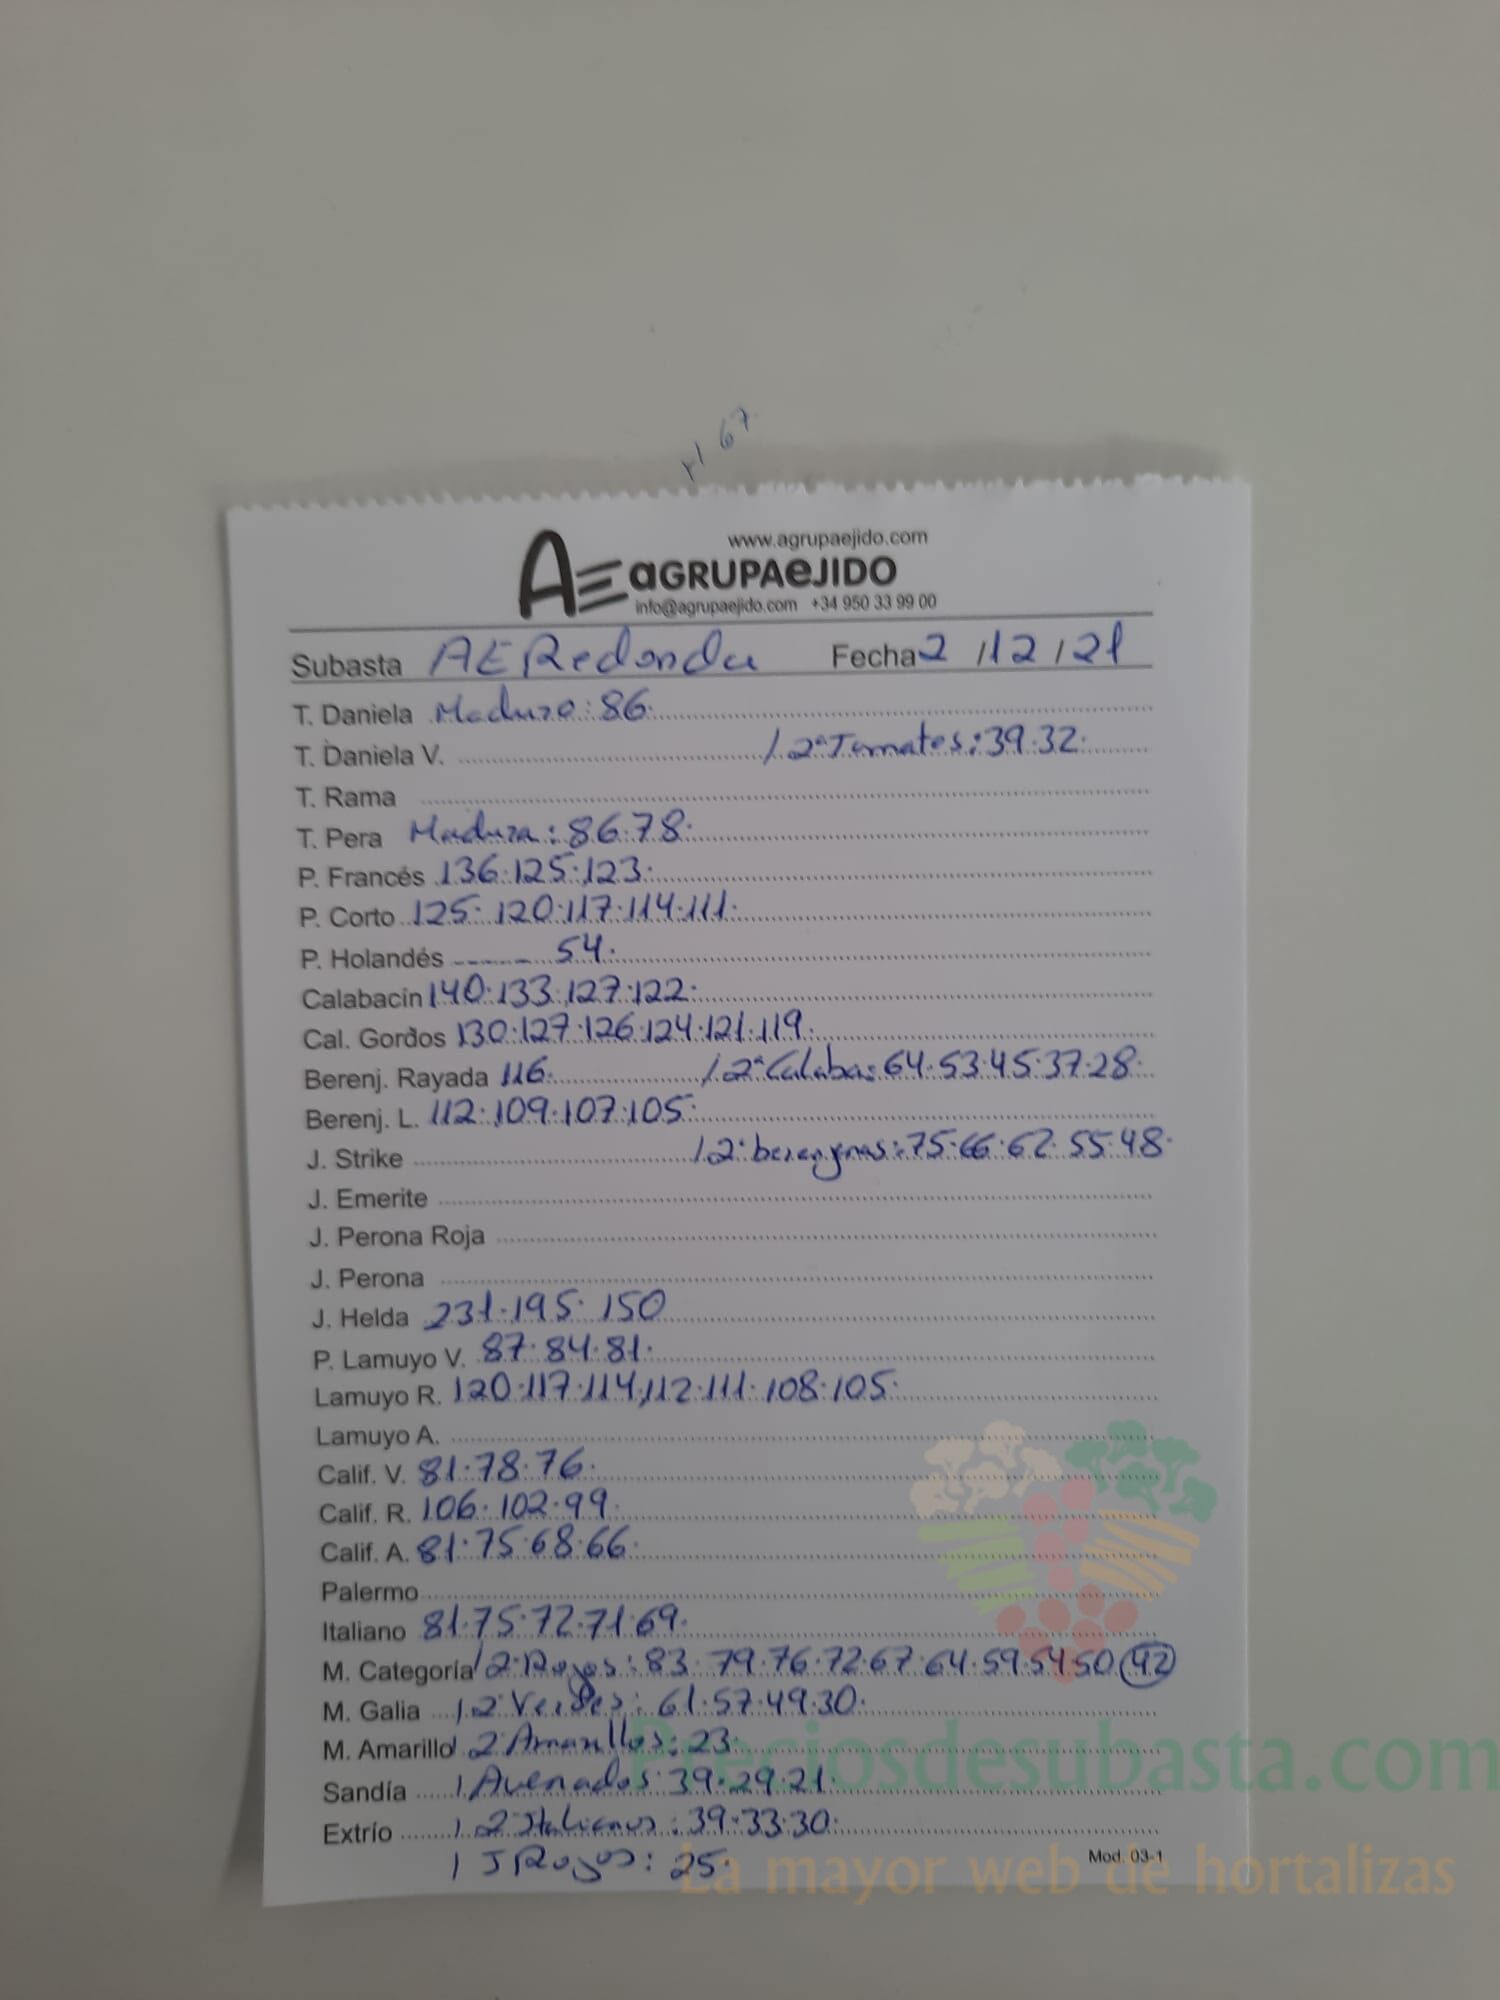 r1 67
www.agrupaejido.com
AE aGRUPAeJIDO
info@agrupaejido.com +34 950 33 99 00
Subasta AE Redonda Fecha 2 /12 /21
T. Daniela Maduro: 86.
T. Daniela V. / 2ª Tomates: 39.32.
T. Rama
T. Pera Madura: 86.78.
P. Francés 136.125.123.
P. Corto 125. 120.117.114.111.
P. Holandés ------ 54.
Calabacín 140.133.127.122.
Cal. Gordos 130.127.126.124.121.119.
Berenj. Rayada 116. / 2ª Calaba: 64.53.45.37.28.
Berenj. L. 112.109.107.105.
J. Strike / 2ª berenjnas: 75.66.62.55.48.
J. Emerite
J. Perona Roja
J. Perona
J. Helda 231.195. 150
P. Lamuyo V. 87.84.81.
Lamuyo R. 120.117.114.112.111.108.105.
Lamuyo A.
Calif. V. 81.78.76.
Calif. R. 106.102.99.
Calif. A. 81.75.68.66.
Palermo
Italiano 81.75.72.71.69.
M. Categoría / 2ª Rojos: 83.79.76.72.67.64.59.54.50 (42)
M. Galia / 2ª Verdes: 61.57.49.30.
M. Amarillo / 2ª Amarillos: 23.
Sandía / Avenados: 39.29.21.
Extrío / 2ª Italianos: 39.33.30.
/ J Rojos: 25.
Mod. 03-1
Preciosdesubasta.com
La mayor web de hortalizas